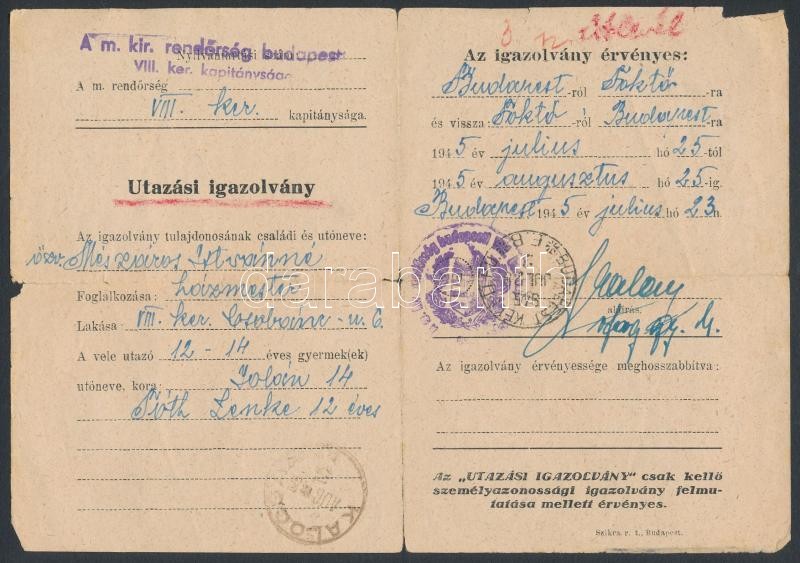 A m. kir. rendőrség budapesti
VIII. ker. kapitánysága
Nyilvántartási
A m. rendőrség
VIII. ker. kapitánysága.
Utazási igazolvány
Az igazolvány tulajdonosának családi és utóneve:
özv. Mészáros Istvánné
Foglalkozása: házmester
Lakása VIII. ker. Csobánc-u. 6.
A vele utazó 12-14 éves gyermek(ek)
utóneve, kora: Jolán 14
Tóth Lenke 12 éves
KALOCSA
Az igazolvány érvényes:
Budapest-ról Foktő-ra
és vissza: Foktő-ról Budapest-ra
1945 év julius hó 25-tól
1945 év augusztus hó 25-ig.
Budapest 1945 év julius hó 23n.
aláírás.
Az igazolvány érvényessége meghosszabbítva:
Az „UTAZÁSI IGAZOLVÁNY" csak kellő
személyazonossági igazolvány felmu-
tatása mellett érvényes.
Szikra r. t., Budapest.
darabanth